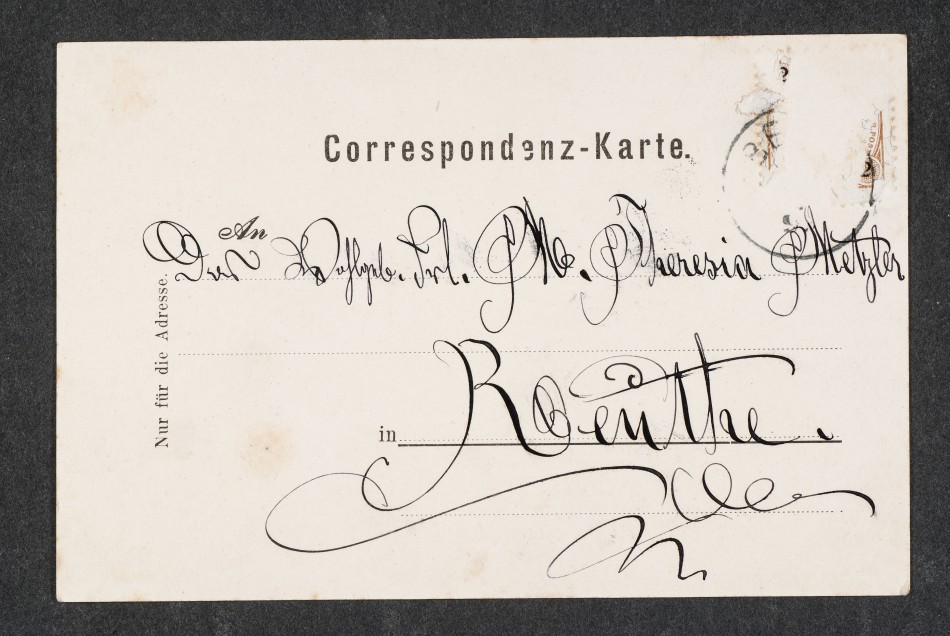 Correspondenz-Karte.
An
Der Wohlgeb. Frl. M. Theresia Metzler
in Reuthe.
Nur für die Adresse.